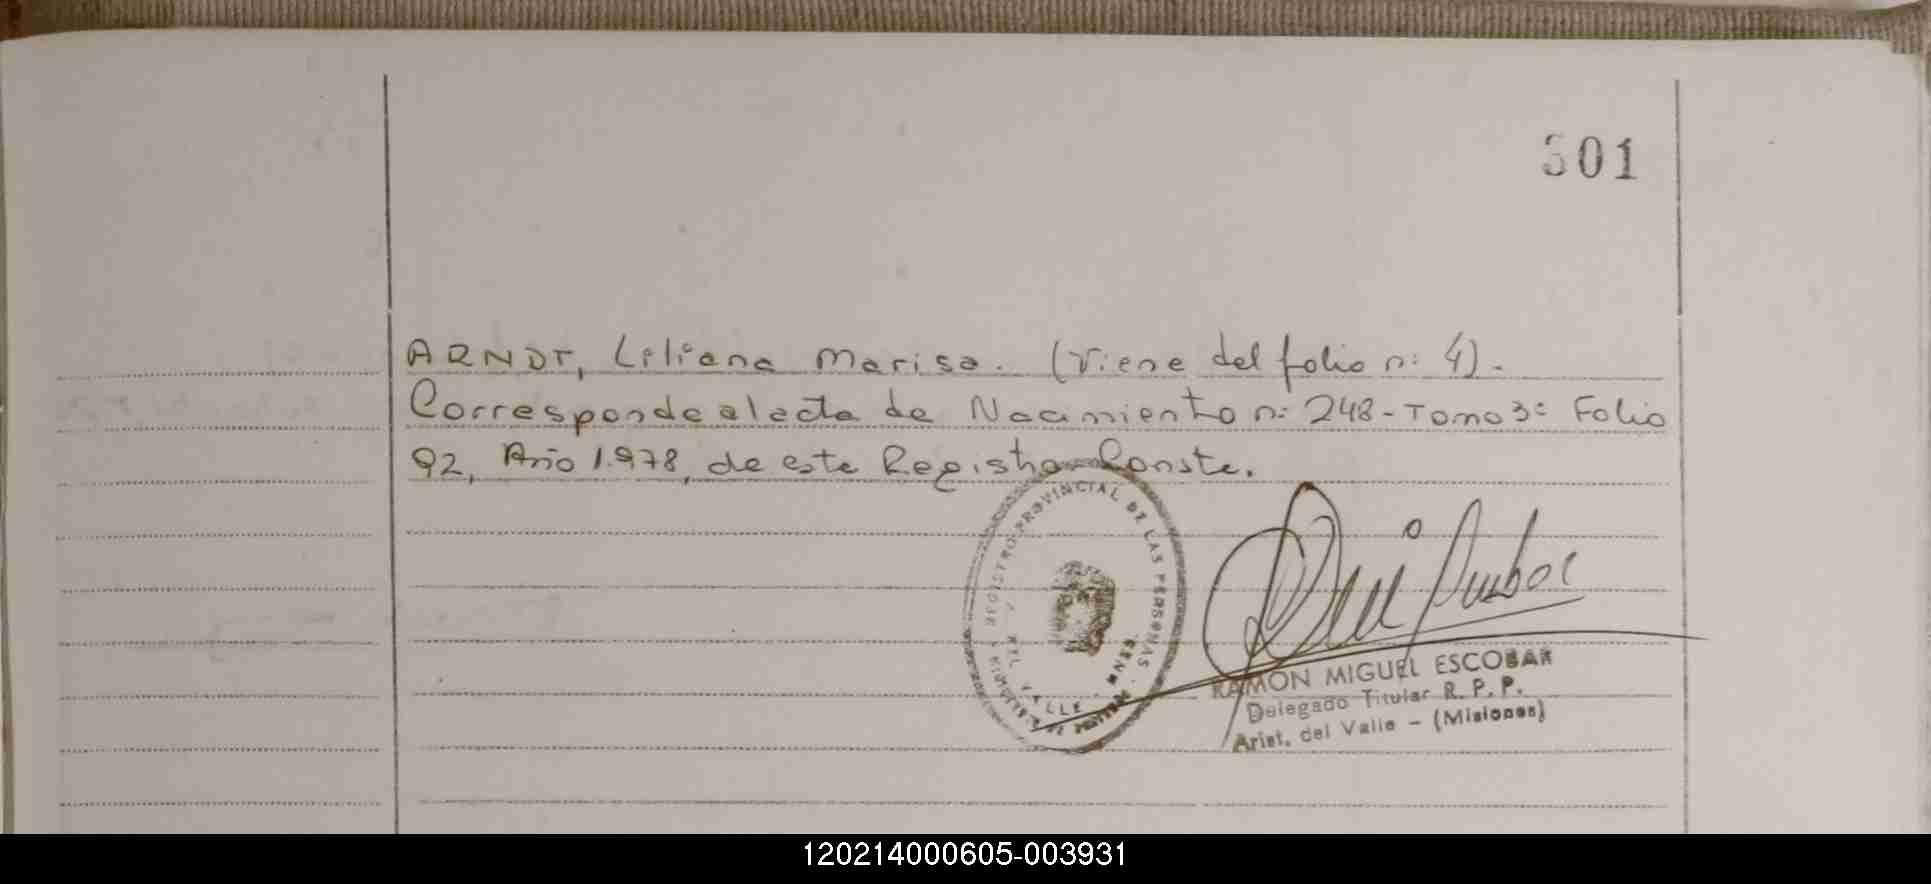 301
ARNDT, Liliana Marisa. (Viene del folio n: 4).
Corresponde al acta de Nacimiento n: 248 - Tomo 3: Folio
92, Año 1.978, de este Registro. Conste.
REGISTRO PROVINCIAL DE LAS PERSONAS
DEL VALLE
RAMON MIGUEL ESCOBAR
Delegado Titular R. P. P.
Arist. del Valle - (Misiones)
120214000605-003931